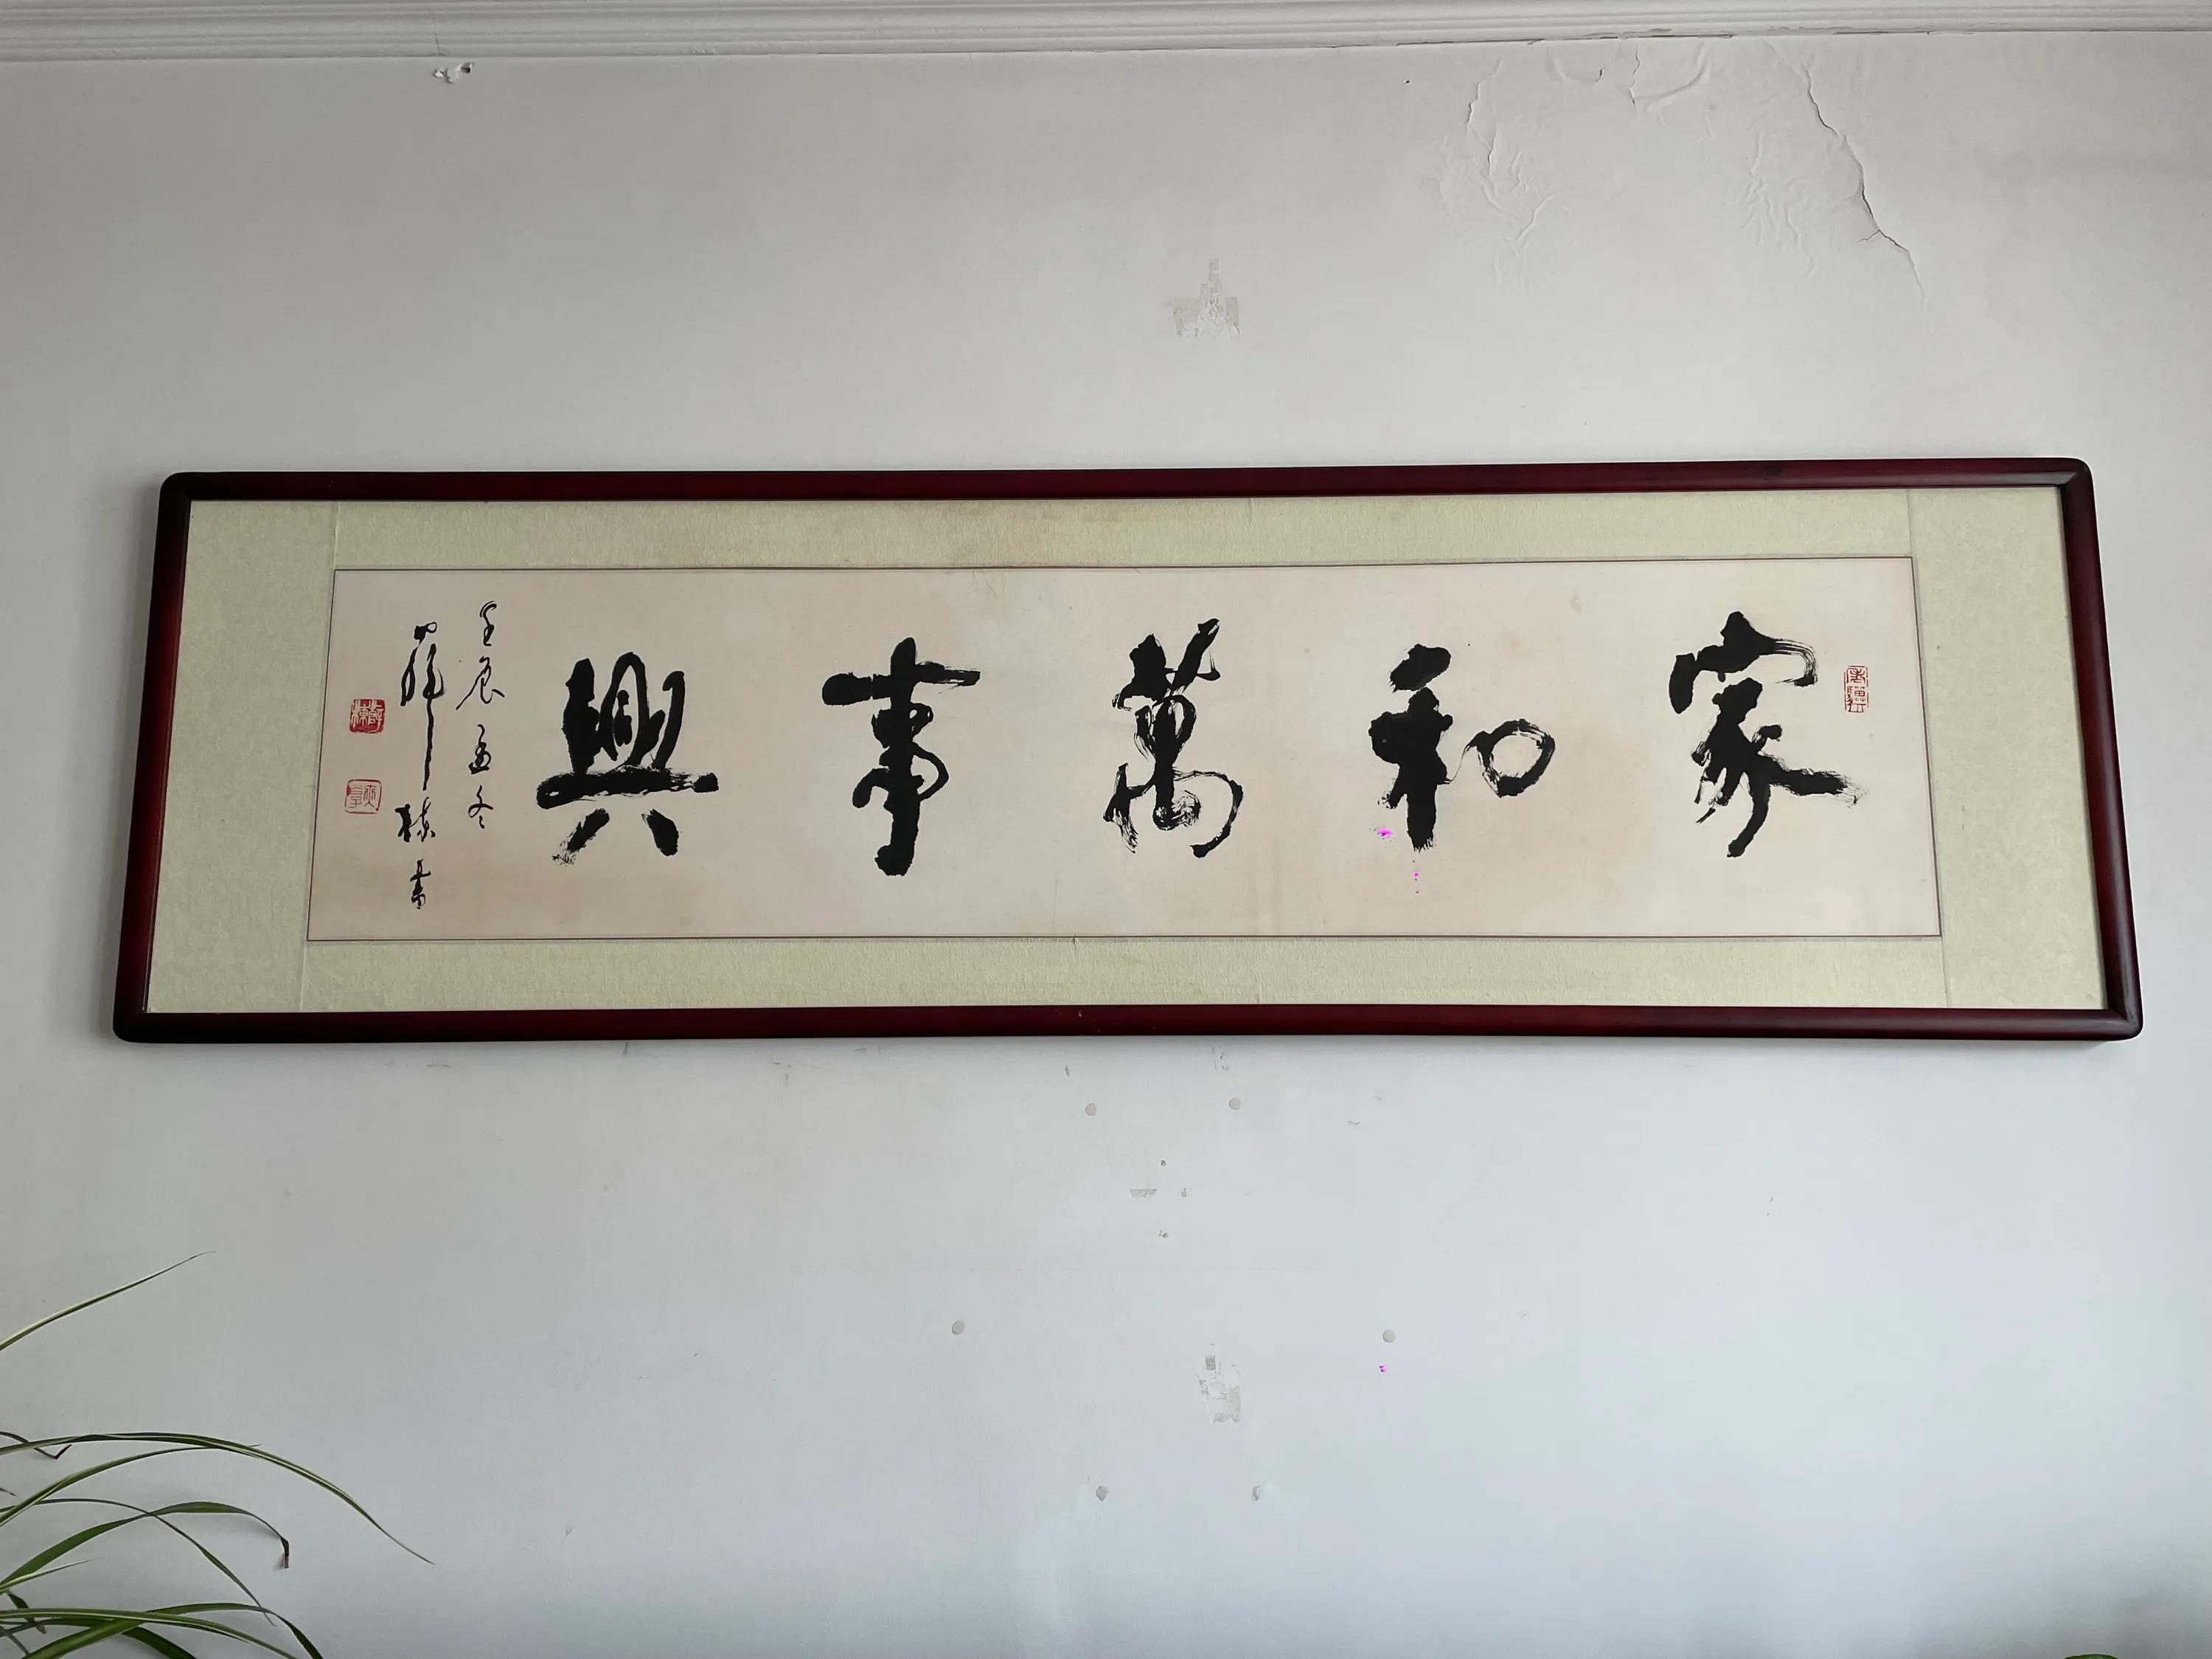 家和萬事興
壬辰孟冬
薛棟書